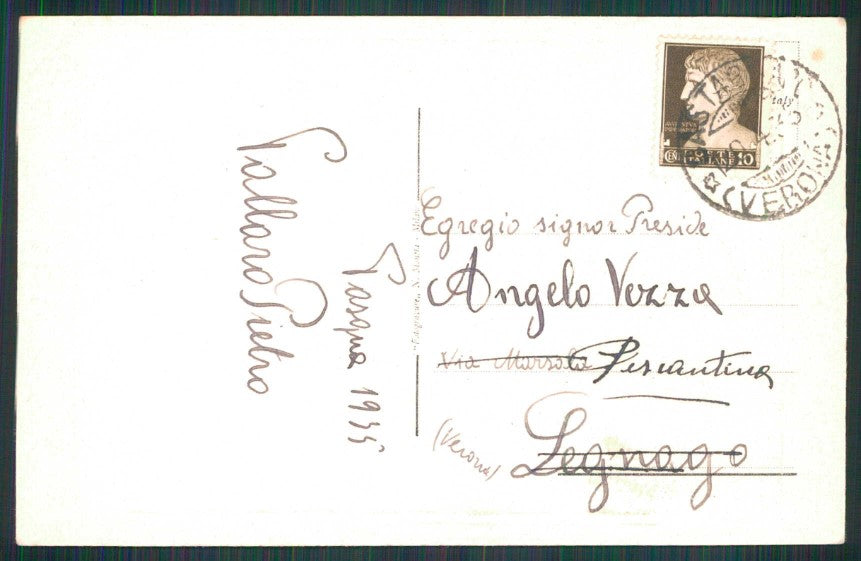 Pallaro Pietro
Pasqua 1935
POSTE
ITALIANE
CEN 10
(VERONA)
Egregio signor Preside
Angelo Vezza
Via Marsala Pescantina
Legnago
(Verona)